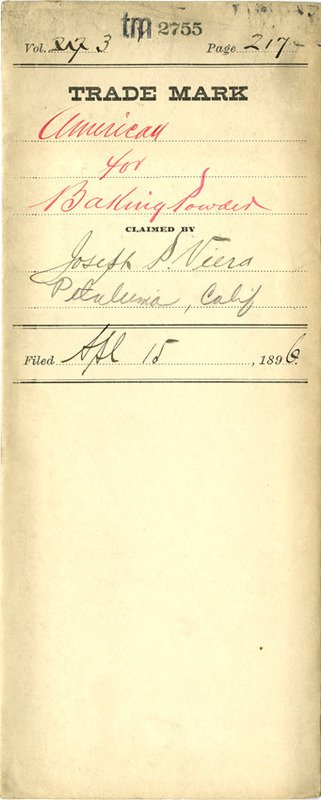 tm 2755
Vol. 3 Page 217
TRADE MARK
American
for
Baking Powder
CLAIMED BY
Joseph S. Viera
Petaluma, Calif
Filed Apl 15, 1896.